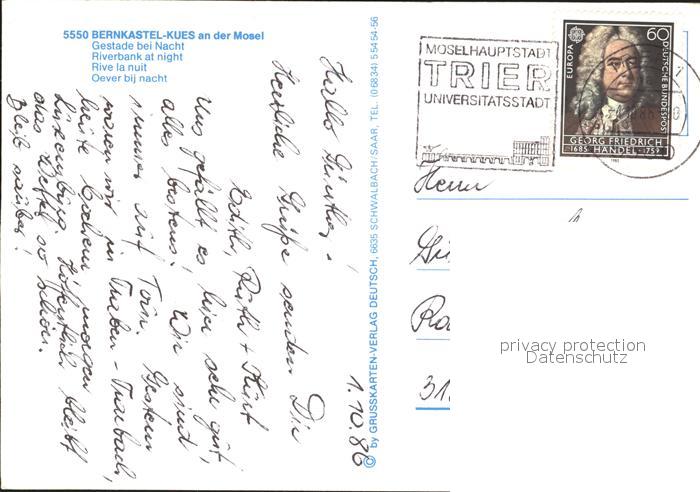 5550 BERNKASTEL-KUES an der Mosel
Gestade bei Nacht
Riverbank at night
Rive la nuit
Oever bij nacht
1.10.86
Hallo Günther!
Herzliche Grüße senden Dir
Edith, Ruth + Kurt
Uns gefällt es hier sehr gut,
alles bestens! Wir sind
immer auf Tour. Gestern
waren wir in Traben-Trarbach,
heute Cochem morgen
Luxemburg. Hoffentlich bleibt
das Wetter so schön.
Bleib sauber!
© by GRUSSKARTEN-VERLAG DEUTSCH, 6635 SCHWALBACH/SAAR, TEL. (06834) 55454-56
MOSELHAUPTSTADT
TRIER
UNIVERSITÄTSSTADT
EUROPA
60
DEUTSCHE BUNDESPOST
GEORG FRIEDRICH
1685 HÄNDEL 1759
1985
Herrn
31
privacy protection
Datenschutz